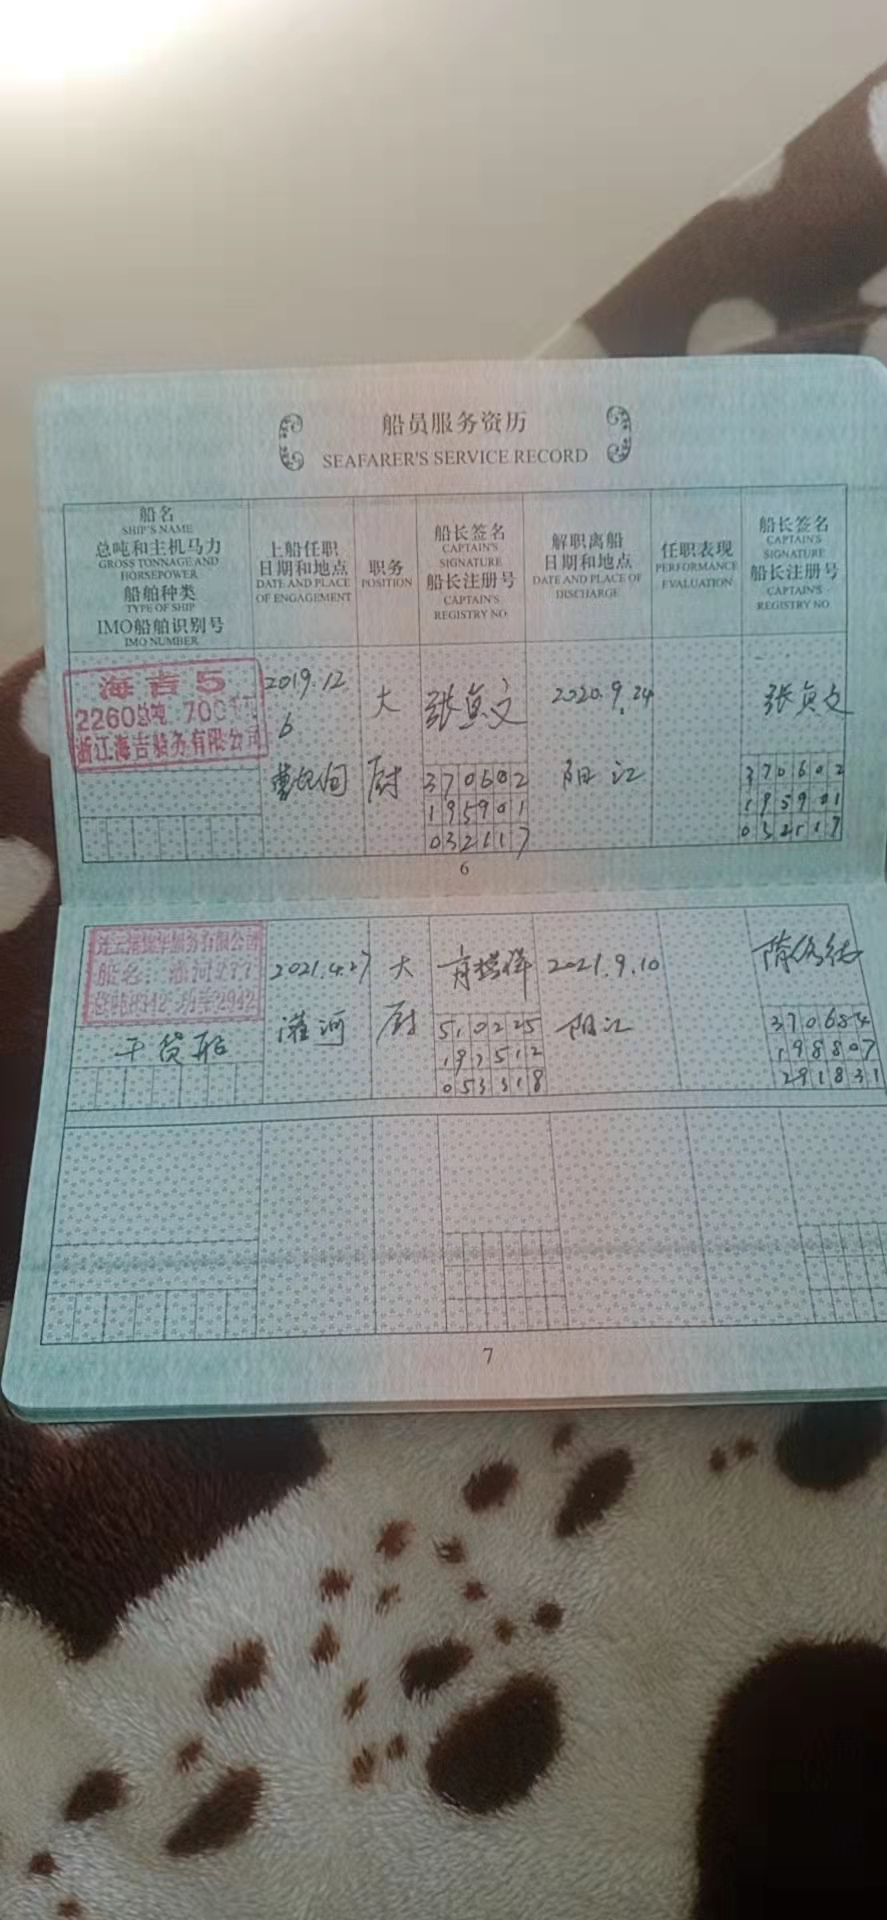 船员服务资历
SEAFARER'S SERVICE RECORD
船名
SHIP'S NAME
总吨和主机马力
GROSS TONNAGE AND
HORSEPOWER
船舶种类
TYPE OF SHIP
IMO船舶识别号
IMO NUMBER
上船任职
日期和地点
DATE AND PLACE
OF ENGAGEMENT
职务
POSITION
船长签名
CAPTAIN'S
SIGNATURE
船长注册号
CAPTAIN'S
REGISTRY NO
解职离船
日期和地点
DATE AND PLACE OF
DISCHARGE
任职表现
PERFORMANCE
EVALUATION
船长签名
CAPTAIN'S
SIGNATURE
船长注册号
CAPTAIN'S
REGISTRY NO
海吉5
2260总吨 700
浙江海吉 务有限公司
2019.12
6
大
厨
张 文
370602
195901
2020.9.24
阳江
张 文
370602
195901
6
船名:
2021.4.27
灌河
干货船
大
厨
2021.9.10
阳江
510225
053318
隋
370684
198807
291831
7